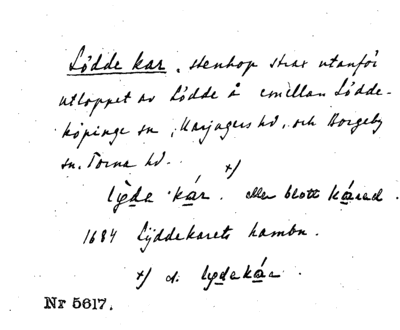 Lödde kar, stenhop strax utanför
utloppet av Lödde å emellan Lödde-
köpinge sn, Harjagers hd, och Borgeby
sn. Torna hd.
x)
lyde kár. eller blott káred.
1684 Lyddekarets hambn.
x) d. lydekáa.
Nr 5617.